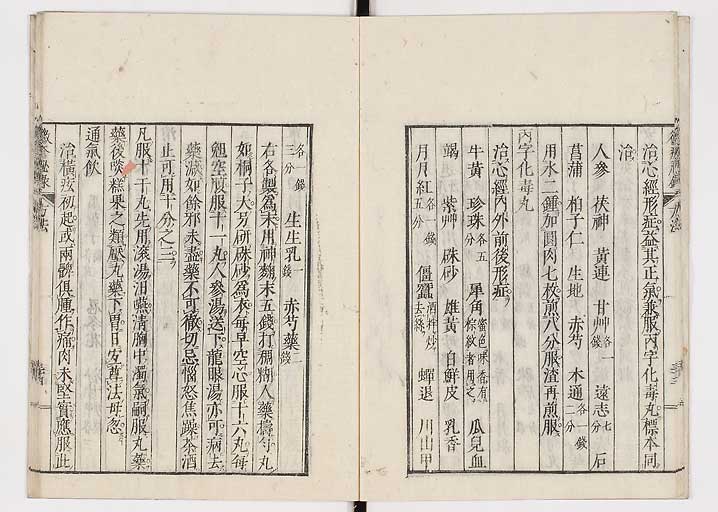 治心經形症益其正氣兼服丙字化毒丸標本同
治
人參 茯神 黃連 甘艸各一錢 遠志七分 石
菖蒲 柏子仁 生地 赤芍 木通各一錢二分
用水二鍾加圓肉七枚煎八分服渣再煎服
丙字化毒丸
治心經內外前後形症
牛黃 珍珠各五分 犀角蜜色味香有粽紋者用之 瓜兒血
竭 紫艸 硃砂 雄黃 白鮮皮 乳香
月月紅各一錢五分 僵蠶酒拌炒去絲 蟬退 川山甲
各一錢三分 生生乳一錢 赤芍藥二錢
右各製爲末用神麯末五錢打稠糊入藥擣勻丸
如桐子大另研硃砂爲衣每早空心服十六丸每
晚空服服十一丸人參湯送下龍眼湯亦可病去
藥減如餘邪未盡藥不可徹切忌惱怒焦躁茶酒
止可用十分之二
凡服十干丸先用滾湯汨嚥清胸中濁氣嗣服丸藥
藥後啖糕果之類壓丸藥下胃曰安蓝法毋忽
通氣飲
治橫痃初起或兩髀俱腫作痛肉未堅實應服此